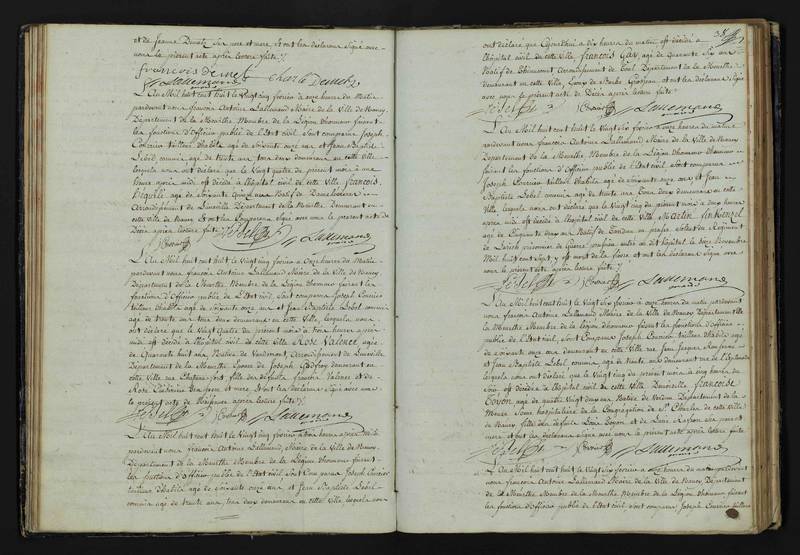 et de Jeanne Donatz Ses pere et mere, et ont les declarans Signé avec
nous le présent acte après lecture faite
françois Demetz Charle Demetz
Lallemand
L'An Mil huit cent huit le Vingt cinq fevrier à onze heures du matin
pardevant nous françois Antoine Lallemand Maire de la Ville de Nancy
Département de la Meurthe, Membre de la Légion d'honneur faisant
les fonctions d'Officier public de l'état civil, Sont comparus Joseph
tailleur d'habits agé de soixante onze ans et Jean Baptiste
Lebel commis agé de trente un ans tous deux demeurans en cette ville
lesquels nous ont déclaré que le Vingt quatre du présent mois à une
heure après midi est décédé à l'hôpital civil de cette Ville françois
agé de Soixante quinze ans Natif de
Arrondissement de Lunéville Département de la Meurthe, Demeurant en
cette Ville de Nancy Et ont les Comparans Signé avec nous le présent acte de
Décès après lecture faite
JB Lebel Lallemand
L'An Mil huit cent huit le Vingt cinq fevrier à onze heures du Matin
pardevant nous françois Antoine Lallemand Maire de la Ville de Nancy
Département de la Meurthe Membre de la Légion d'honneur faisant les
fonctions d'Officier public de l'état civil, sont comparus Joseph
tailleur d'habits agé de soixante onze ans et Jean Baptiste Lebel commis
agé de trente un ans tous deux demeurans en cette Ville, lesquels nous
ont déclaré que le Vingt quatre du présent mois à trois heures après
midi est décédée à l'hôpital civil de cette Ville Rose Valence agée
de Quarante huit ans, Native de Vaudemont Arrondissement de Lunéville
Département de la Meurthe Epouse de Joseph Godfroy demeurant en
cette Ville rue fille des défunts françois Valence et de
Rose Catherine ses pere et mere, Et ont les déclarans Signé avec nous
le présent acte de après lecture faite
JB Lebel Lallemand
L'An Mil huit cent huit le Vingt cinq fevrier à trois heures après midi
pardevant nous françois Antoine Lallemand Maire de la Ville de Nancy
Département de la Meurthe Membre de la Légion d'honneur faisant
les fonctions d'officier public de l'Etat civil Sont Comparus Joseph
tailleur d'habits agé de soixante onze ans, et Jean Baptiste Lebel
commis agé de trente un ans tous deux demeurans en cette Ville, lesquels nous
38
ont déclaré que Cejourd'hui à dix heures du matin est décédé à
l'hôpital civil de cette Ville françois Gay, agé de Quarante Six ans
Natif de Arrondissement de Toul Département de la Meurthe
demeurant en cette Ville, Epoux de Barbe et ont les déclarans Signé
avec nous le présent acte de Décès après lecture faite
JB Lebel Lallemand
L'An Mil huit cent huit le Vingt Six fevrier à onze heures du matin
pardevant nous françois Antoine Lallemand Maire de la Ville de Nancy
Département de la Meurthe Membre de la Légion d'honneur
faisant les fonctions d'Officier public de l'état civil, Sont comparus
Joseph tailleur d'habits agé de soixante onze ans et Jean
Baptiste Lebel commis, agé de trente un ans Tous deux demeurans en cette
Ville, lesquels nous ont déclaré que le Vingt cinq du présent mois à deux heures
après midi, est décédé à l'hôpital civil de cette Ville Martin
agé de Cinquante deux ans Natif de en prusse Soldat au Régiment
de prisonnier de Guerre prussien entré au dit hôpital le Novembre
Mil huit cent Sept y est mort de la fievre et ont les déclarans Signé avec
nous le présent acte après lecture faite
JB Lebel Lallemand
L'An Mil huit cent huit le Vingt Six fevrier à onze heures du matin pardevant
nous françois Antoine Lallemand Maire de la Ville de Nancy Département de
la Meurthe Membre de la Légion d'honneur faisant les fonctions d'Officier
public de l'état civil, Sont Comparus Joseph tailleur d'habits agé
de soixante onze ans demeurant en cette Ville rue Jean Jacques Rousseau
et Jean Baptiste Lebel commis, agé de trente un ans demeurant rue de l'Esplanade
lesquels nous ont déclaré que le Vingt cinq du présent mois à cinq heures du
soir est décédée à l'hôpital civil de cette Ville Demoiselle françoise
Goyon agée de quatre Vingt deux ans Native de Verdun Département de la
Meuse Soeur hospitaliere de la Congrégation de St Charles de cette Ville
de Nancy fille des défunts Goyon et de ses pere
mere, et ont les déclarans signé avec nous le présent acte après lecture faite
JB Lebel Lallemand
L'An Mil huit cent huit le Vingt Six fevrier à onze heures du matin pardevant
nous françois Antoine Lallemand Maire de la Ville de Nancy, Département
de la Meurthe Membre de la Légion d'honneur faisant
les fonctions d'Officier public de l'état civil, sont comparus Joseph tailleur